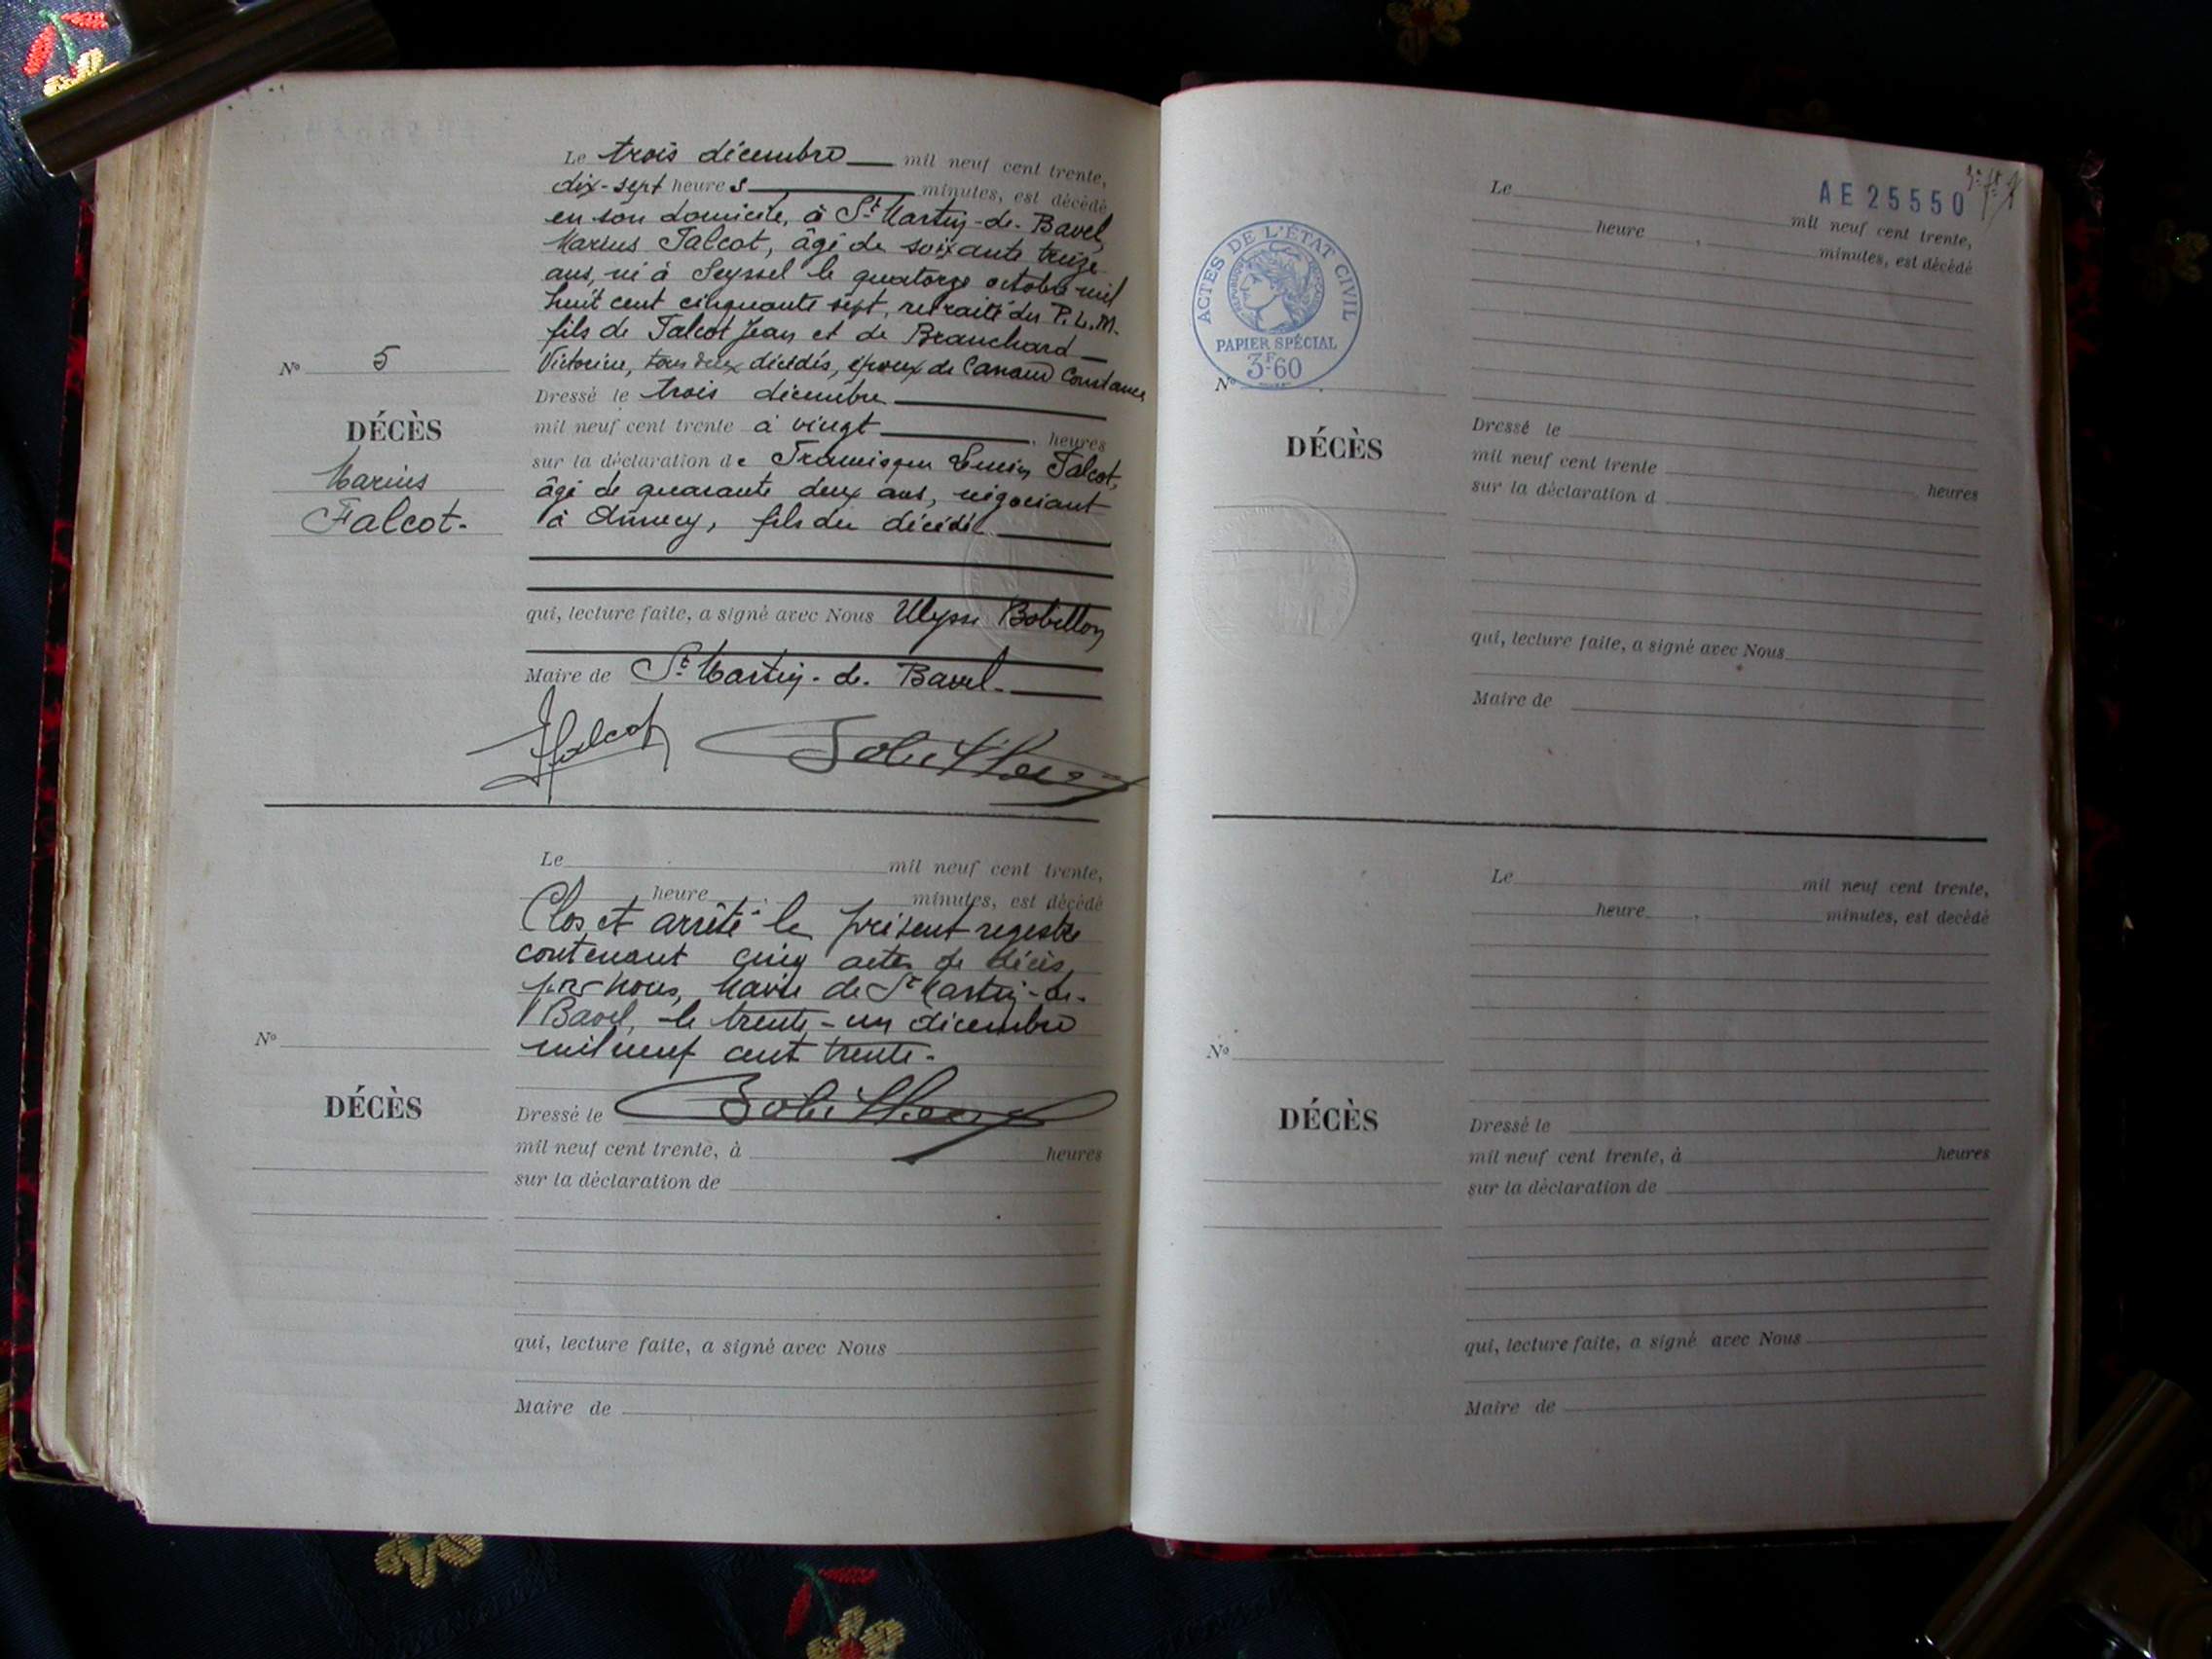 Le trois décembre mil neuf cent trente,
dix-sept heures minutes, est décédé
en son domicile, à St Martin-de-Bavel,
Marius Falcot, âgé de soixante treize
ans, né à Seyssel le quatorze octobre mil
huit cent cinquante sept, retraité du P.L.M.
fils de Falcot Jean et de Branchard
Victorine, tous deux décédés, époux de Canaud Constance
Nº 5
DÉCÈS
Marius
Falcot.
Dressé le trois décembre
mil neuf cent trente à vingt heures
sur la déclaration de Francisque Falcot,
âgé de quarante deux ans, négociant
à Annecy, fils du décédé
qui, lecture faite, a signé avec Nous Ulysse Bobillon
Maire de St Martin-de-Bavel.
Falcot Bobillon
Le mil neuf cent trente,
heure minutes, est décédé
Clos et arrêté le présent registre
contenant cinq actes de décès,
par nous, Maire de St Martin-de-
Bavel, le trente-un décembre
mil neuf cent trente.
Nº
DÉCÈS
Bobillon
Dressé le
mil neuf cent trente, à heures
sur la déclaration de
qui, lecture faite, a signé avec Nous
Maire de
AE 25550
Le mil neuf cent trente,
heure, minutes, est décédé
ACTES DE L'ÉTAT CIVIL
RÉPUBLIQUE FRANÇAISE
PAPIER SPÉCIAL
3F60
Nº
DÉCÈS
Dressé le
mil neuf cent trente heures
sur la déclaration d
qui, lecture faite, a signé avec Nous
Maire de
Le mil neuf cent trente,
heure, minutes, est décédé
Nº
DÉCÈS
Dressé le
mil neuf cent trente, à heures
sur la déclaration de
qui, lecture faite, a signé avec Nous
Maire de